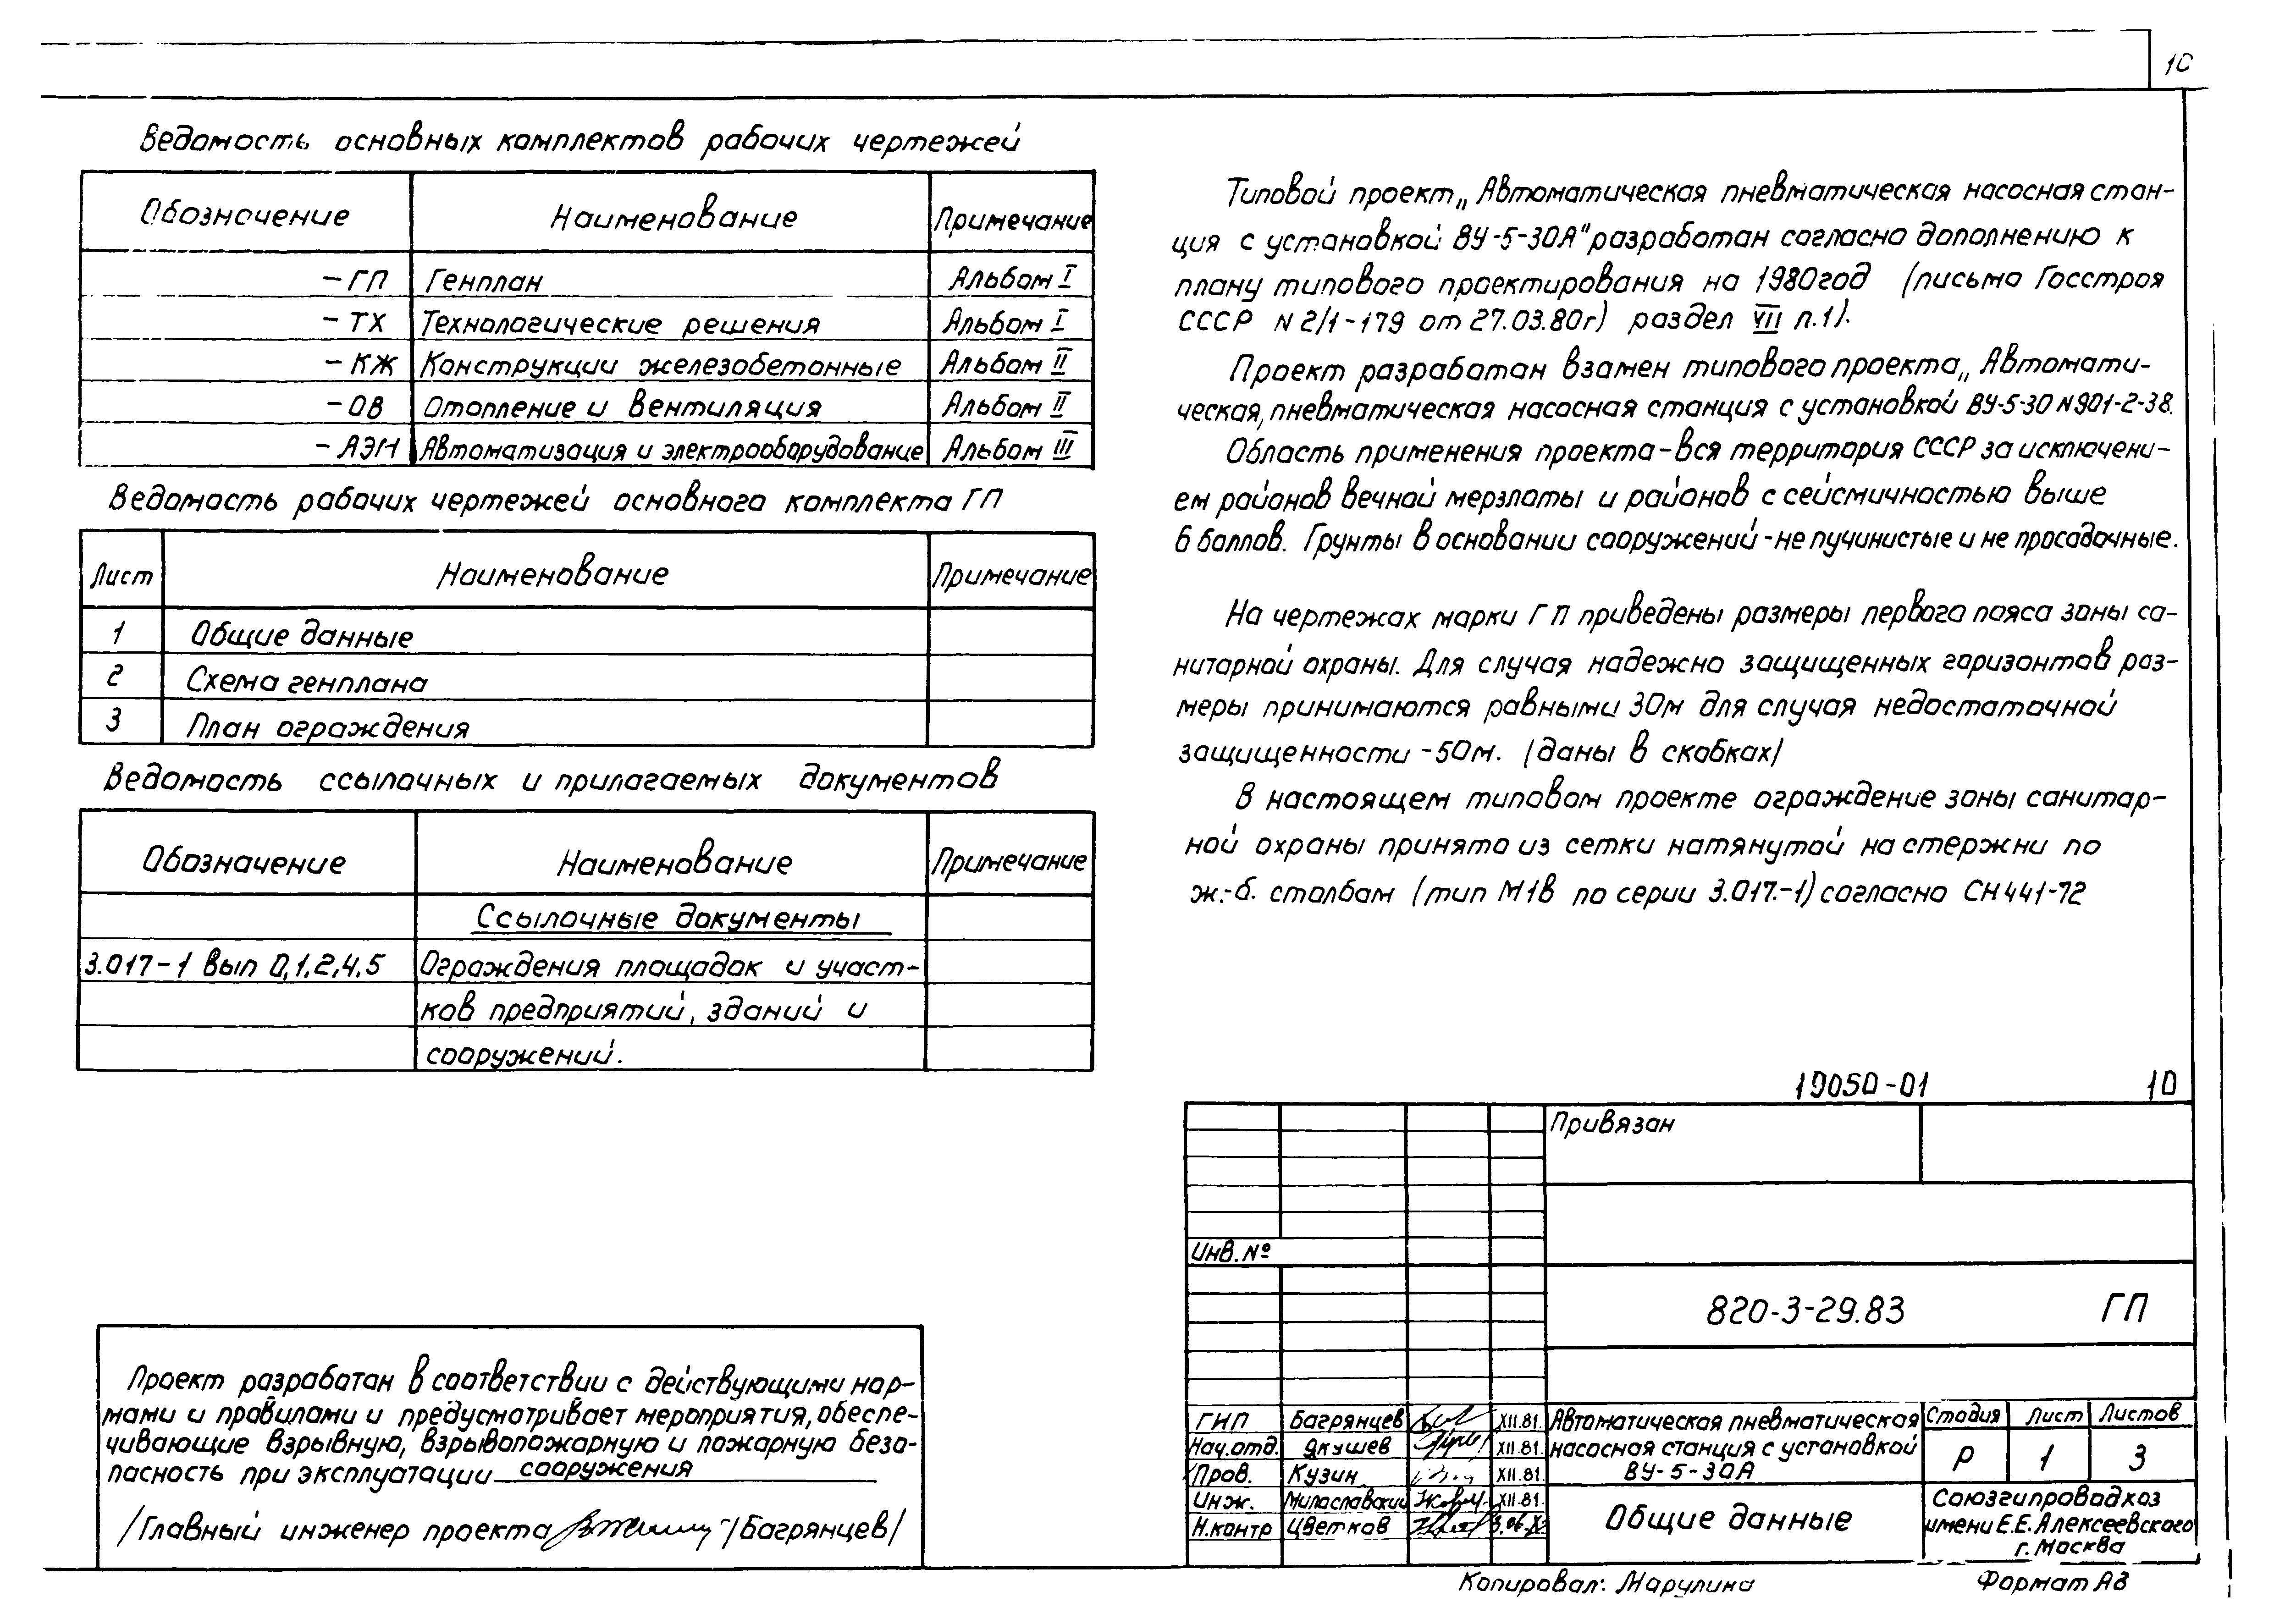 10
Ведомость основных комплектов рабочих чертежей
Обозначение Наименование Примечание
-ГП Генплан Альбом I
-ТХ Технологические решения Альбом I
-КЖ Конструкции железобетонные Альбом II
-ОВ Отопление и вентиляция Альбом II
-АЭМ Автоматизация и электрооборудование Альбом III
Ведомость рабочих чертежей основного комплекта ГП
Лист Наименование Примечание
1 Общие данные
2 Схема генплана
3 План ограждения
Ведомость ссылочных и прилагаемых документов
Обозначение Наименование Примечание
Ссылочные документы
3.017-1 Вып 0,1,2,4,5 Ограждения площадок и участ-
ков предприятий, зданий и
сооружений.
Проект разработан в соответствии с действующими нор-
мами и правилами и предусматривает мероприятия, обеспе-
чивающие взрывную, взрывопожарную и пожарную безо-
пасность при эксплуатации сооружения
/Главный инженер проекта /Багрянцев/
Типовой проект „Автоматическая пневматическая насосная стан-
ция с установкой ВУ-5-30А" разработан согласно дополнению к
плану типового проектирования на 1980год (письмо Госстроя
СССР N 2/1-179 от 27.03.80г) раздел VII п.1).
Проект разработан взамен типового проекта „Автомати-
ческая, пневматическая насосная станция с установкой ВУ-5-30 N901-2-38.
Область применения проекта-вся территория СССР за исключени-
ем районов вечной мерзлоты и районов с сейсмичностью выше
6 баллов. Грунты в основании сооружений-не пучинистые и не просадочные.
На чертежах марки ГП приведены размеры первого пояса зоны са-
нитарной охраны. Для случая надежно защищенных горизонтов раз-
меры принимаются равными 30м для случая недостаточной
защищенности -50м. (даны в скобках)
В настоящем типовом проекте ограждение зоны санитар-
ной охраны принято из сетки натянутой на стержни по
ж.-б. столбам (тип М1В по серии 3.017.-1) согласно СН441-72
19050-01 10
Привязан
Инв. №
820-3-29.83 ГП
ГИП Багрянцев XII.81.
Нач.отд. Якушев XII.81.
Пров. Кузин XII.81.
Инж. Милославский XII.81.
Н.контр Цветков
Автоматическая пневматическая
насосная станция с установкой
ВУ-5-30А
Стадия Лист Листов
Р 1 3
Общие данные
Союзгипроводхоз
имени Е.Е.Алексеевского
г. Москва
Копировал: Марулина Формат А3